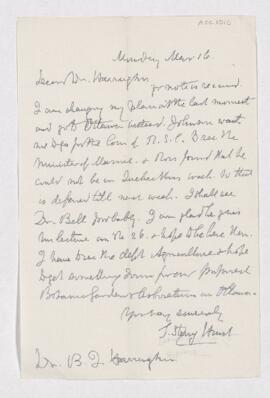 ACC 1010
Monday Mar 16.
Dear Dr. Harrington
Yr note is received.
I am changing my plans at the last moment
and go to Ottawa instead. Johnson wants
me to go for the Com of R.S.C. &
Minister of Marine. & Ross found that he
could not be in Quebec this week. So that
is deferred till next week. I shall see
Dr. Bell probably. I am glad he gives
his lecture on the 26. & hope to be here then.
I have the dept Agriculture & hope
to get something done for our proposed
Botanic Garden & Arboretum in Ottawa.
Yours very sincerely
T. Sterry Hunt
Dr. B. J. Harrington